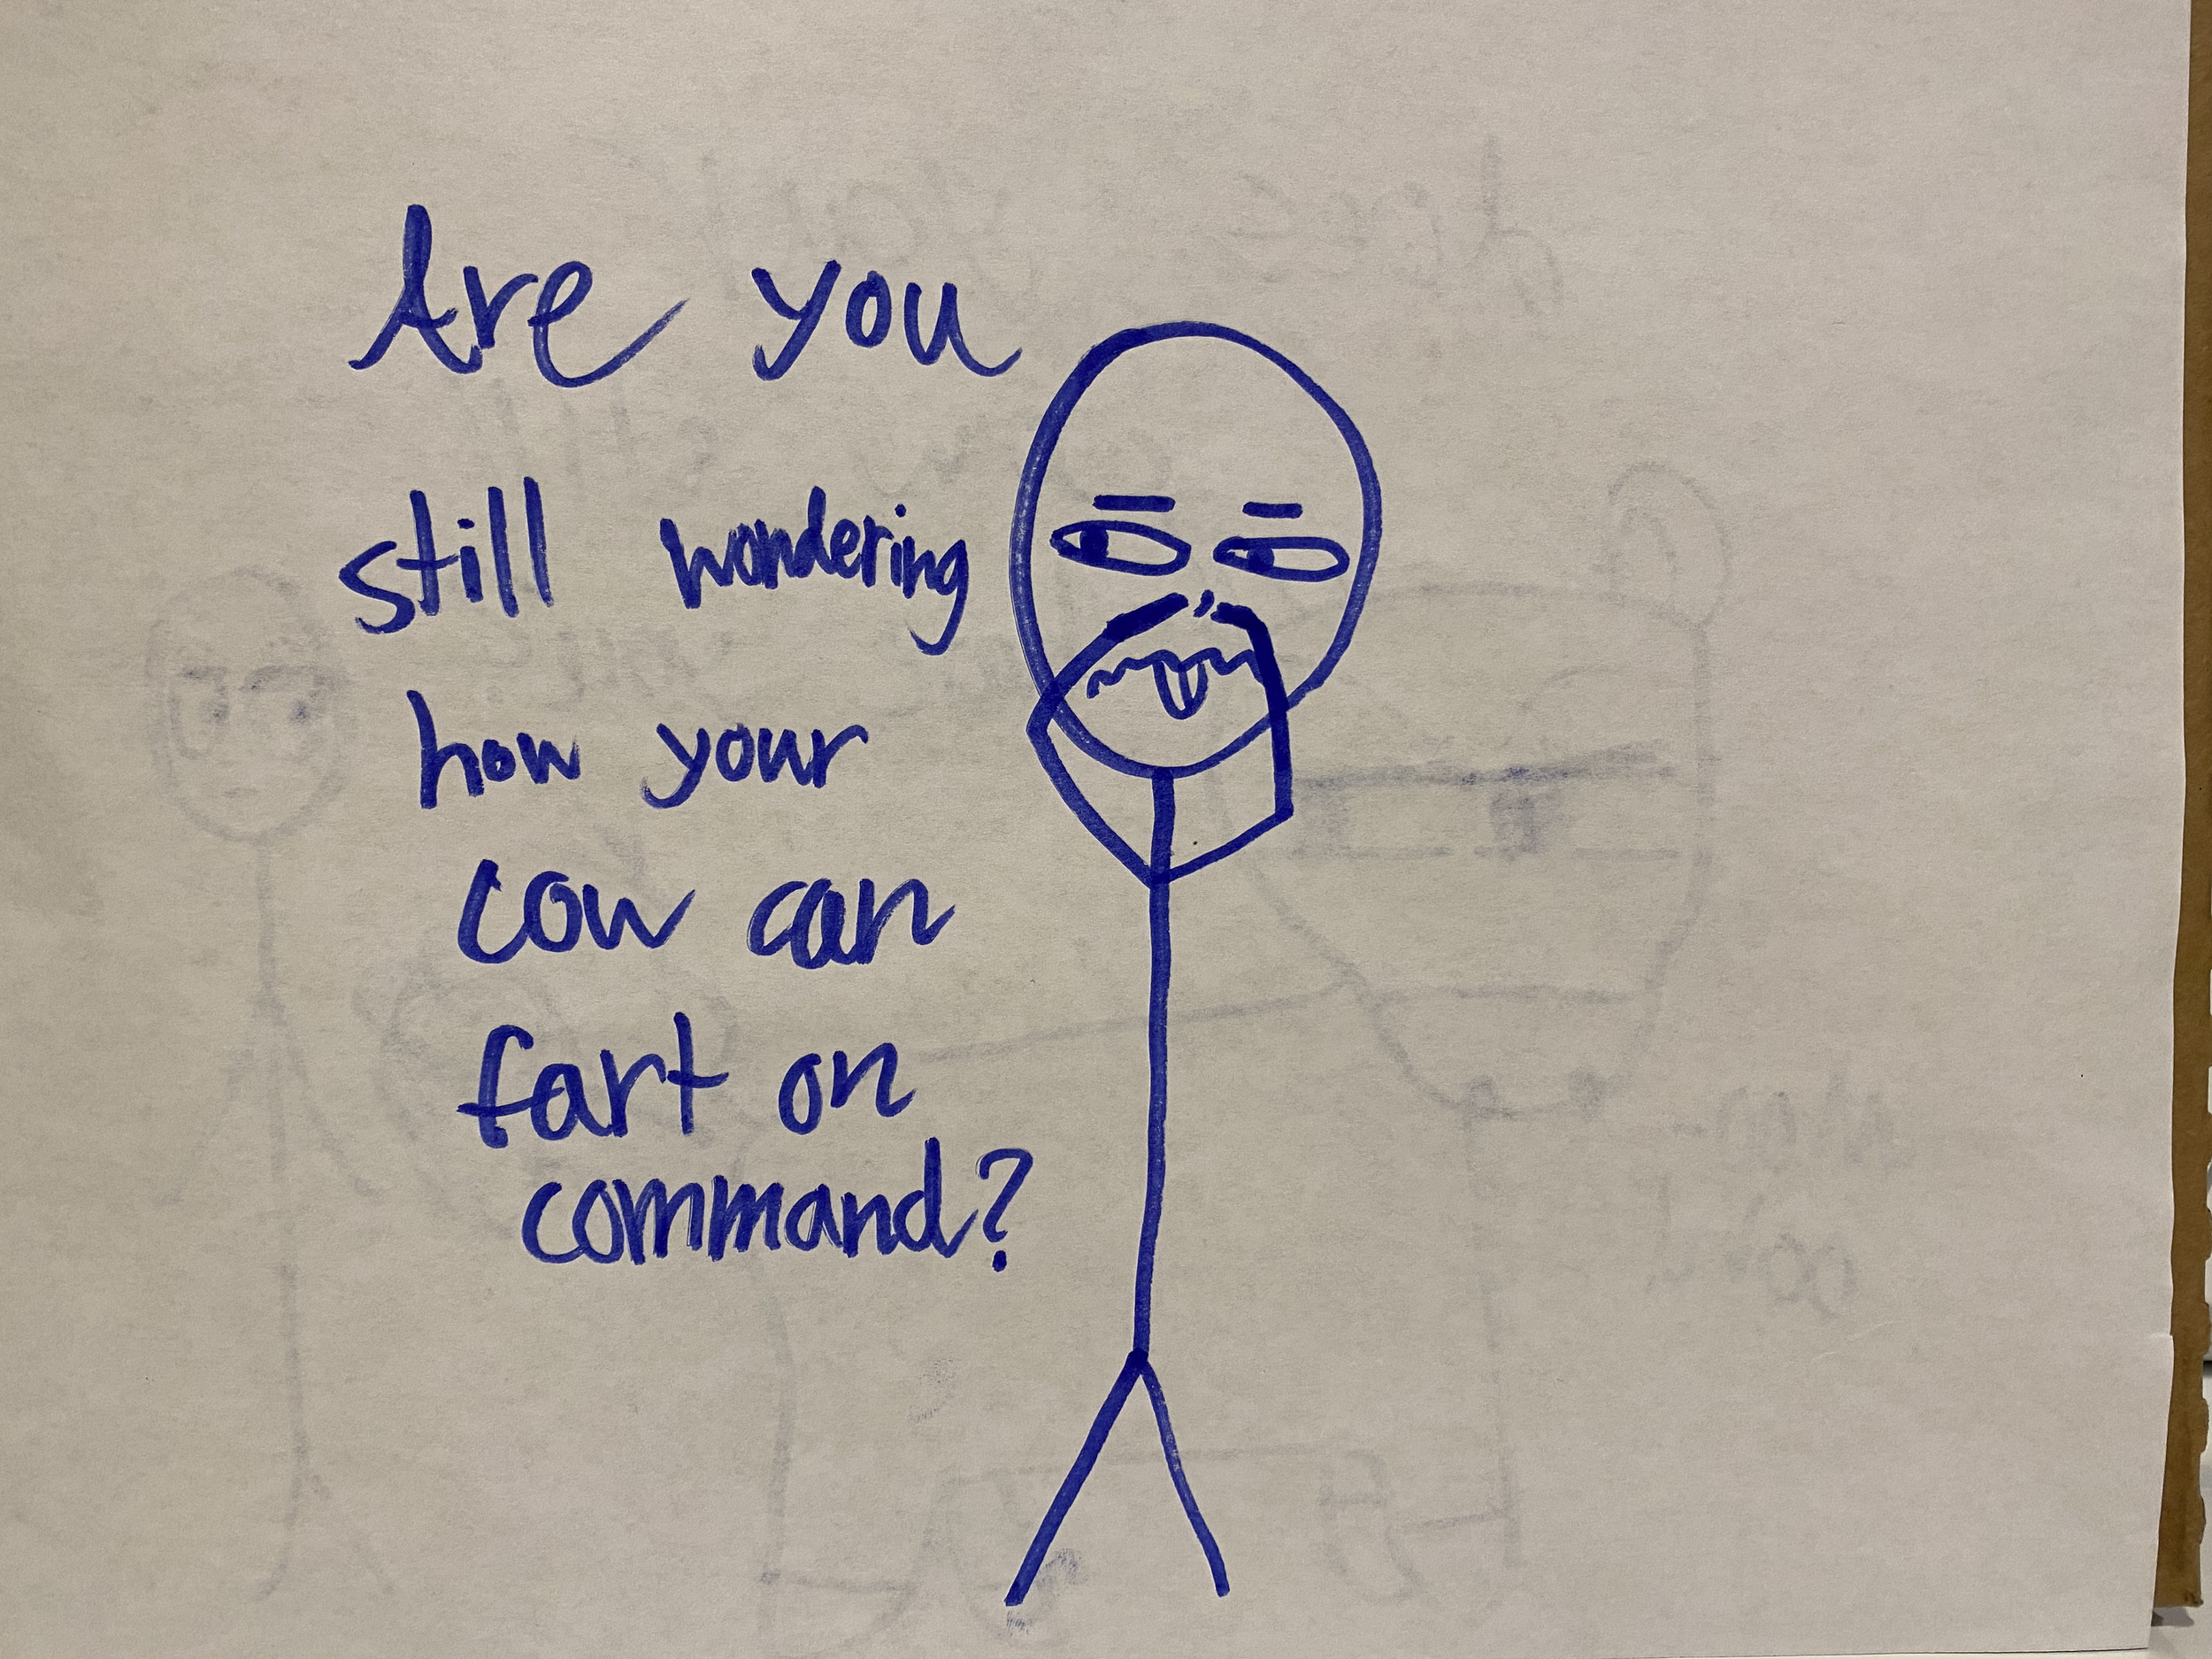 Are you
still wondering
how your
cow can
fart on
command?